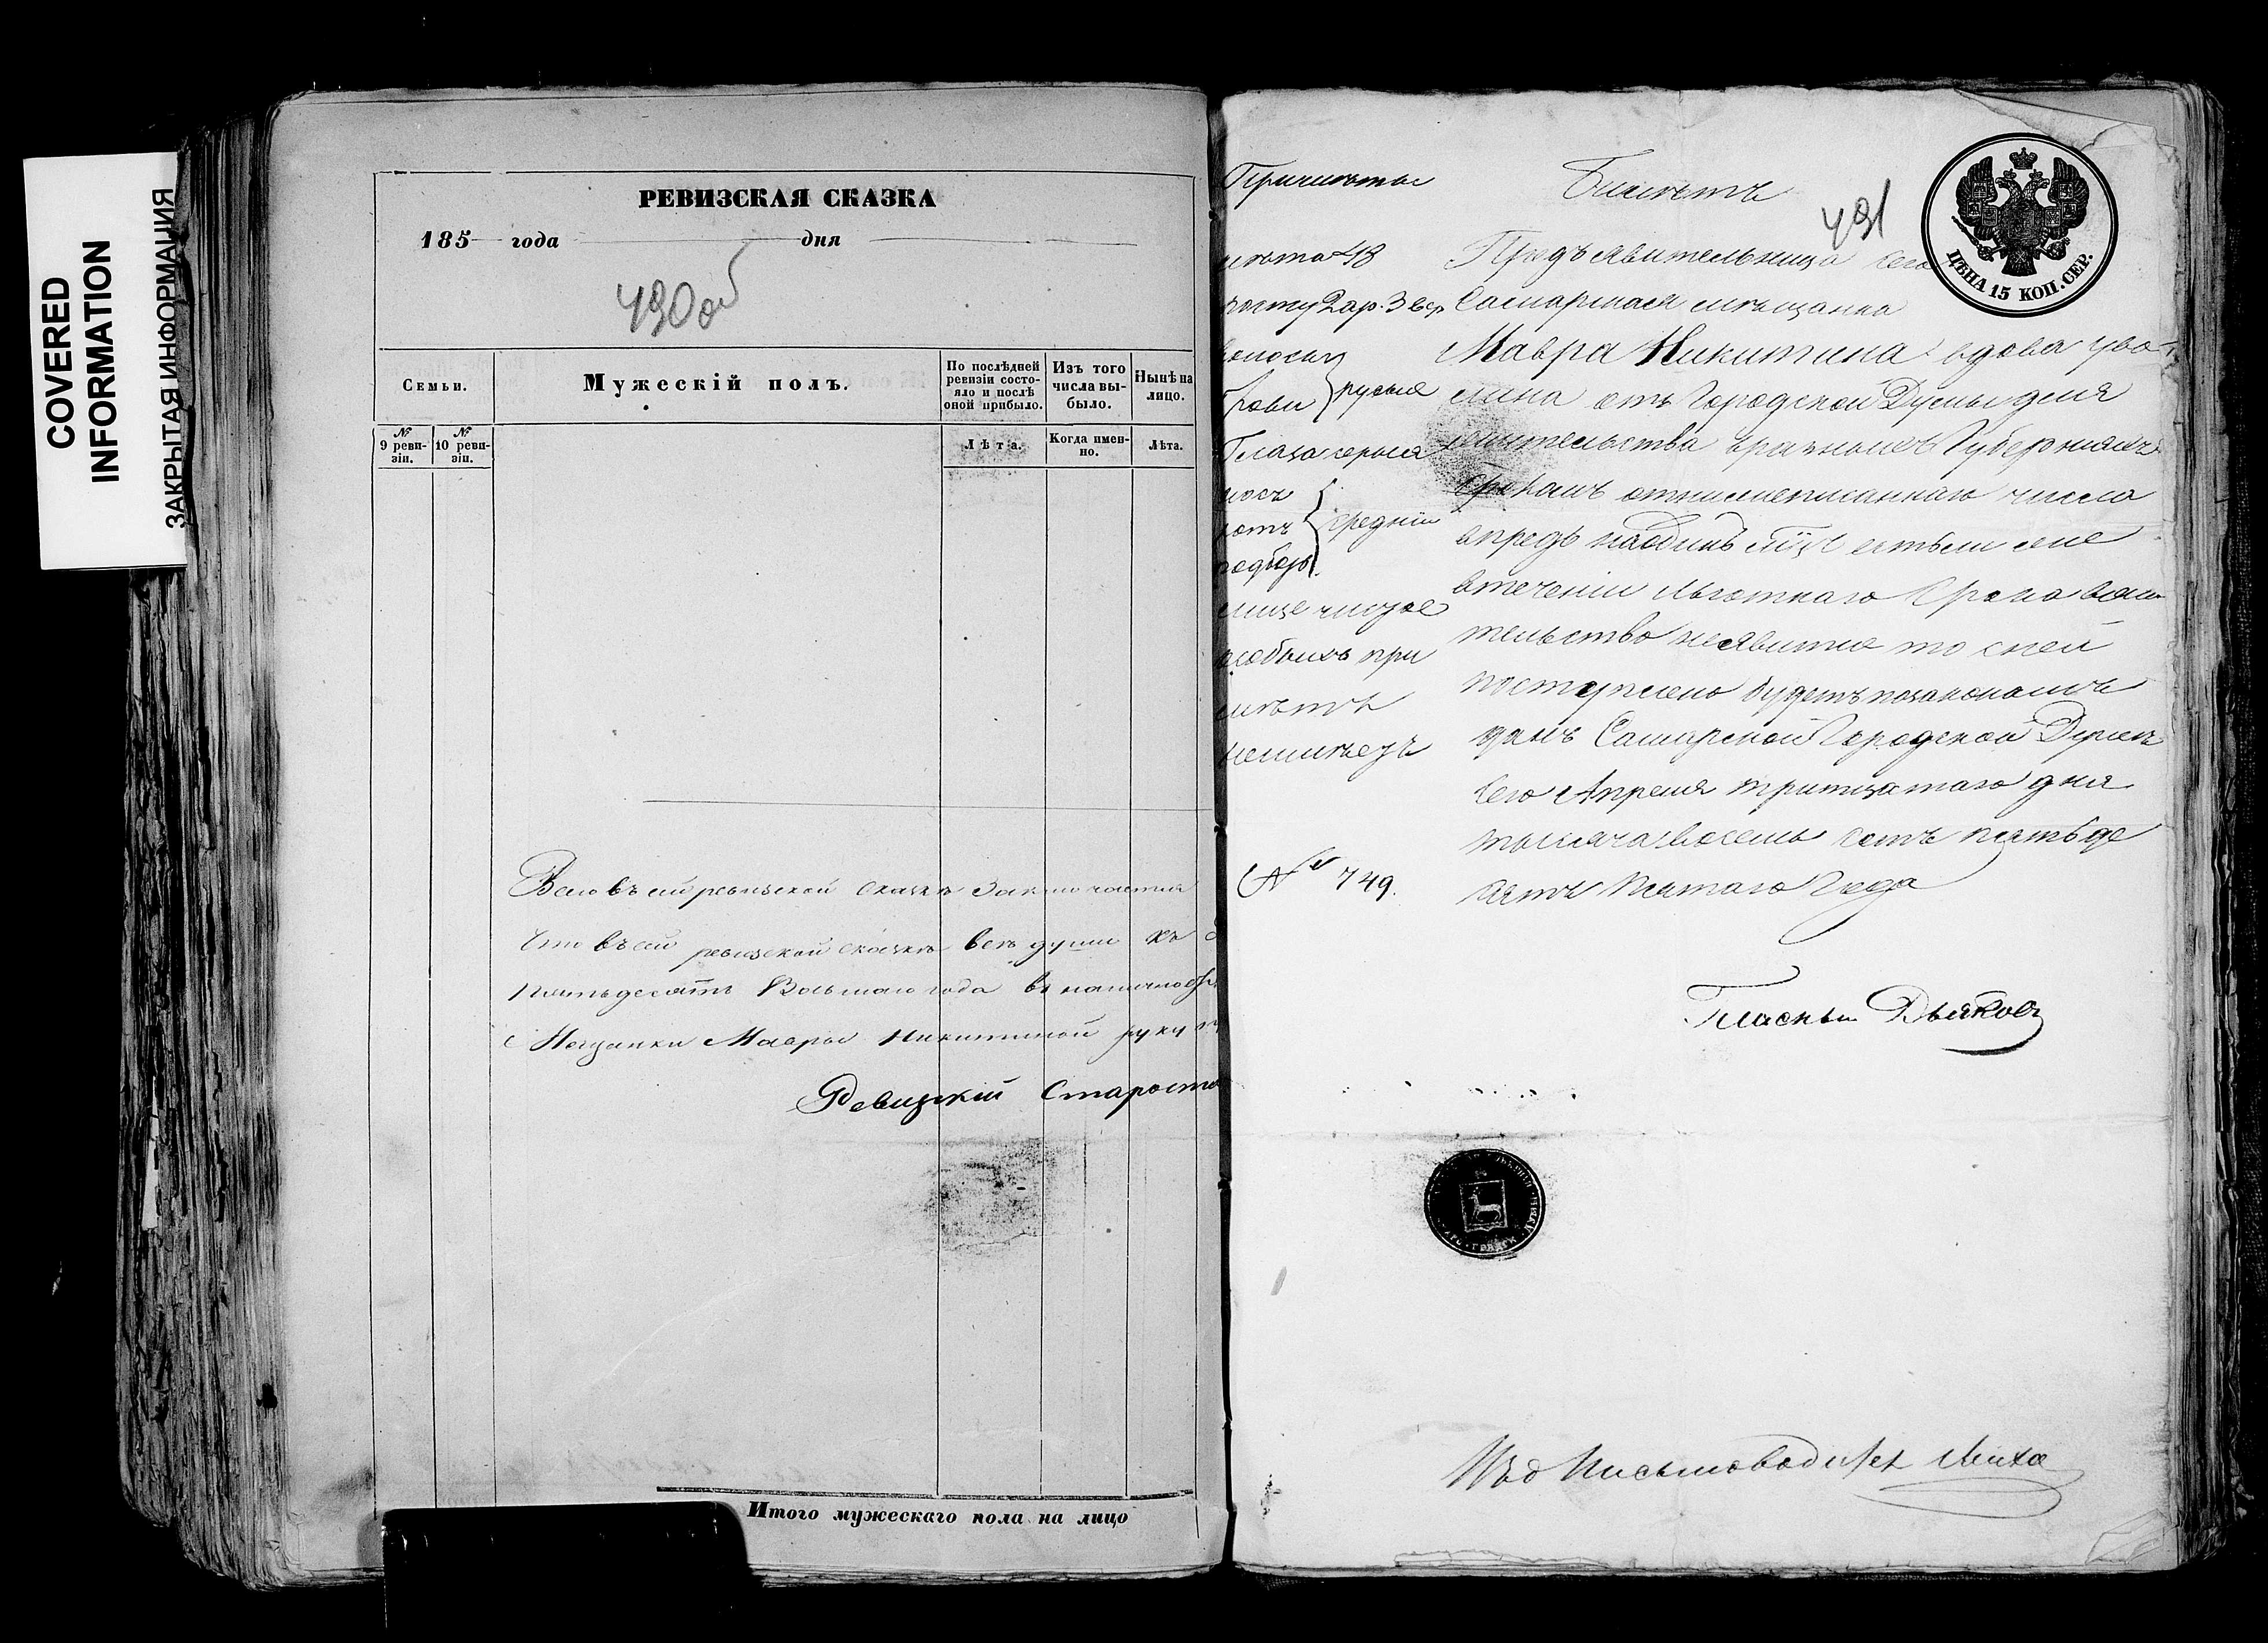 COVERED
INFORMATION
ЗАКРЫТАЯ ИНФОРМАЦИЯ
РЕВИЗСКАЯ СКАЗКА
185 года дня
490 об
Семьи.
Мужескій полъ.
По послѣдней
ревизіи состо-
яло и послѣ
оной прибыло.
Изъ того
числа вы-
было.
Нынѣ на
лицо.
№
9 реви-
зіи.
№
10 реви-
зіи.
Лѣта.
Когда имен-
но.
Лѣта.
ревизской сказкѣ
ревизской сказкѣ всѣ души
Пятьдесятъ года
Мещанки Мавры Никитиной руку
Ревизкій Старост
Итого мужескаго пола на лицо
Примѣты
лѣта 48
росту 2 ар. 3 вер
волосы
брови } русыя
Глаза серыя
носъ
ротъ } средніи
подбор
лице чистое
особыхъ при
мѣтъ
неимѣетъ
№ 749.
Билетъ
491
ЦѢНА 15 КОП. СЕР.
Предъявительница сего
Самарская мѣщанка
Мавра Никитина вдова уво-
лена отъ Городской Думы для
жительства вразныхъ Губерніяхъ
срокомъ отнижеписаннаго числа
впредь наодинъ
втеченіи льготнаго срока
тельство неявится то сней
поступлено будетъ позаконамъ
данъ Самарской Городской Думы
сего Апреля тритцатаго дня
тысяча восемь сотъ пятьде
сятъ пятаго года
Гласный Дьяковъ
Письмоводител